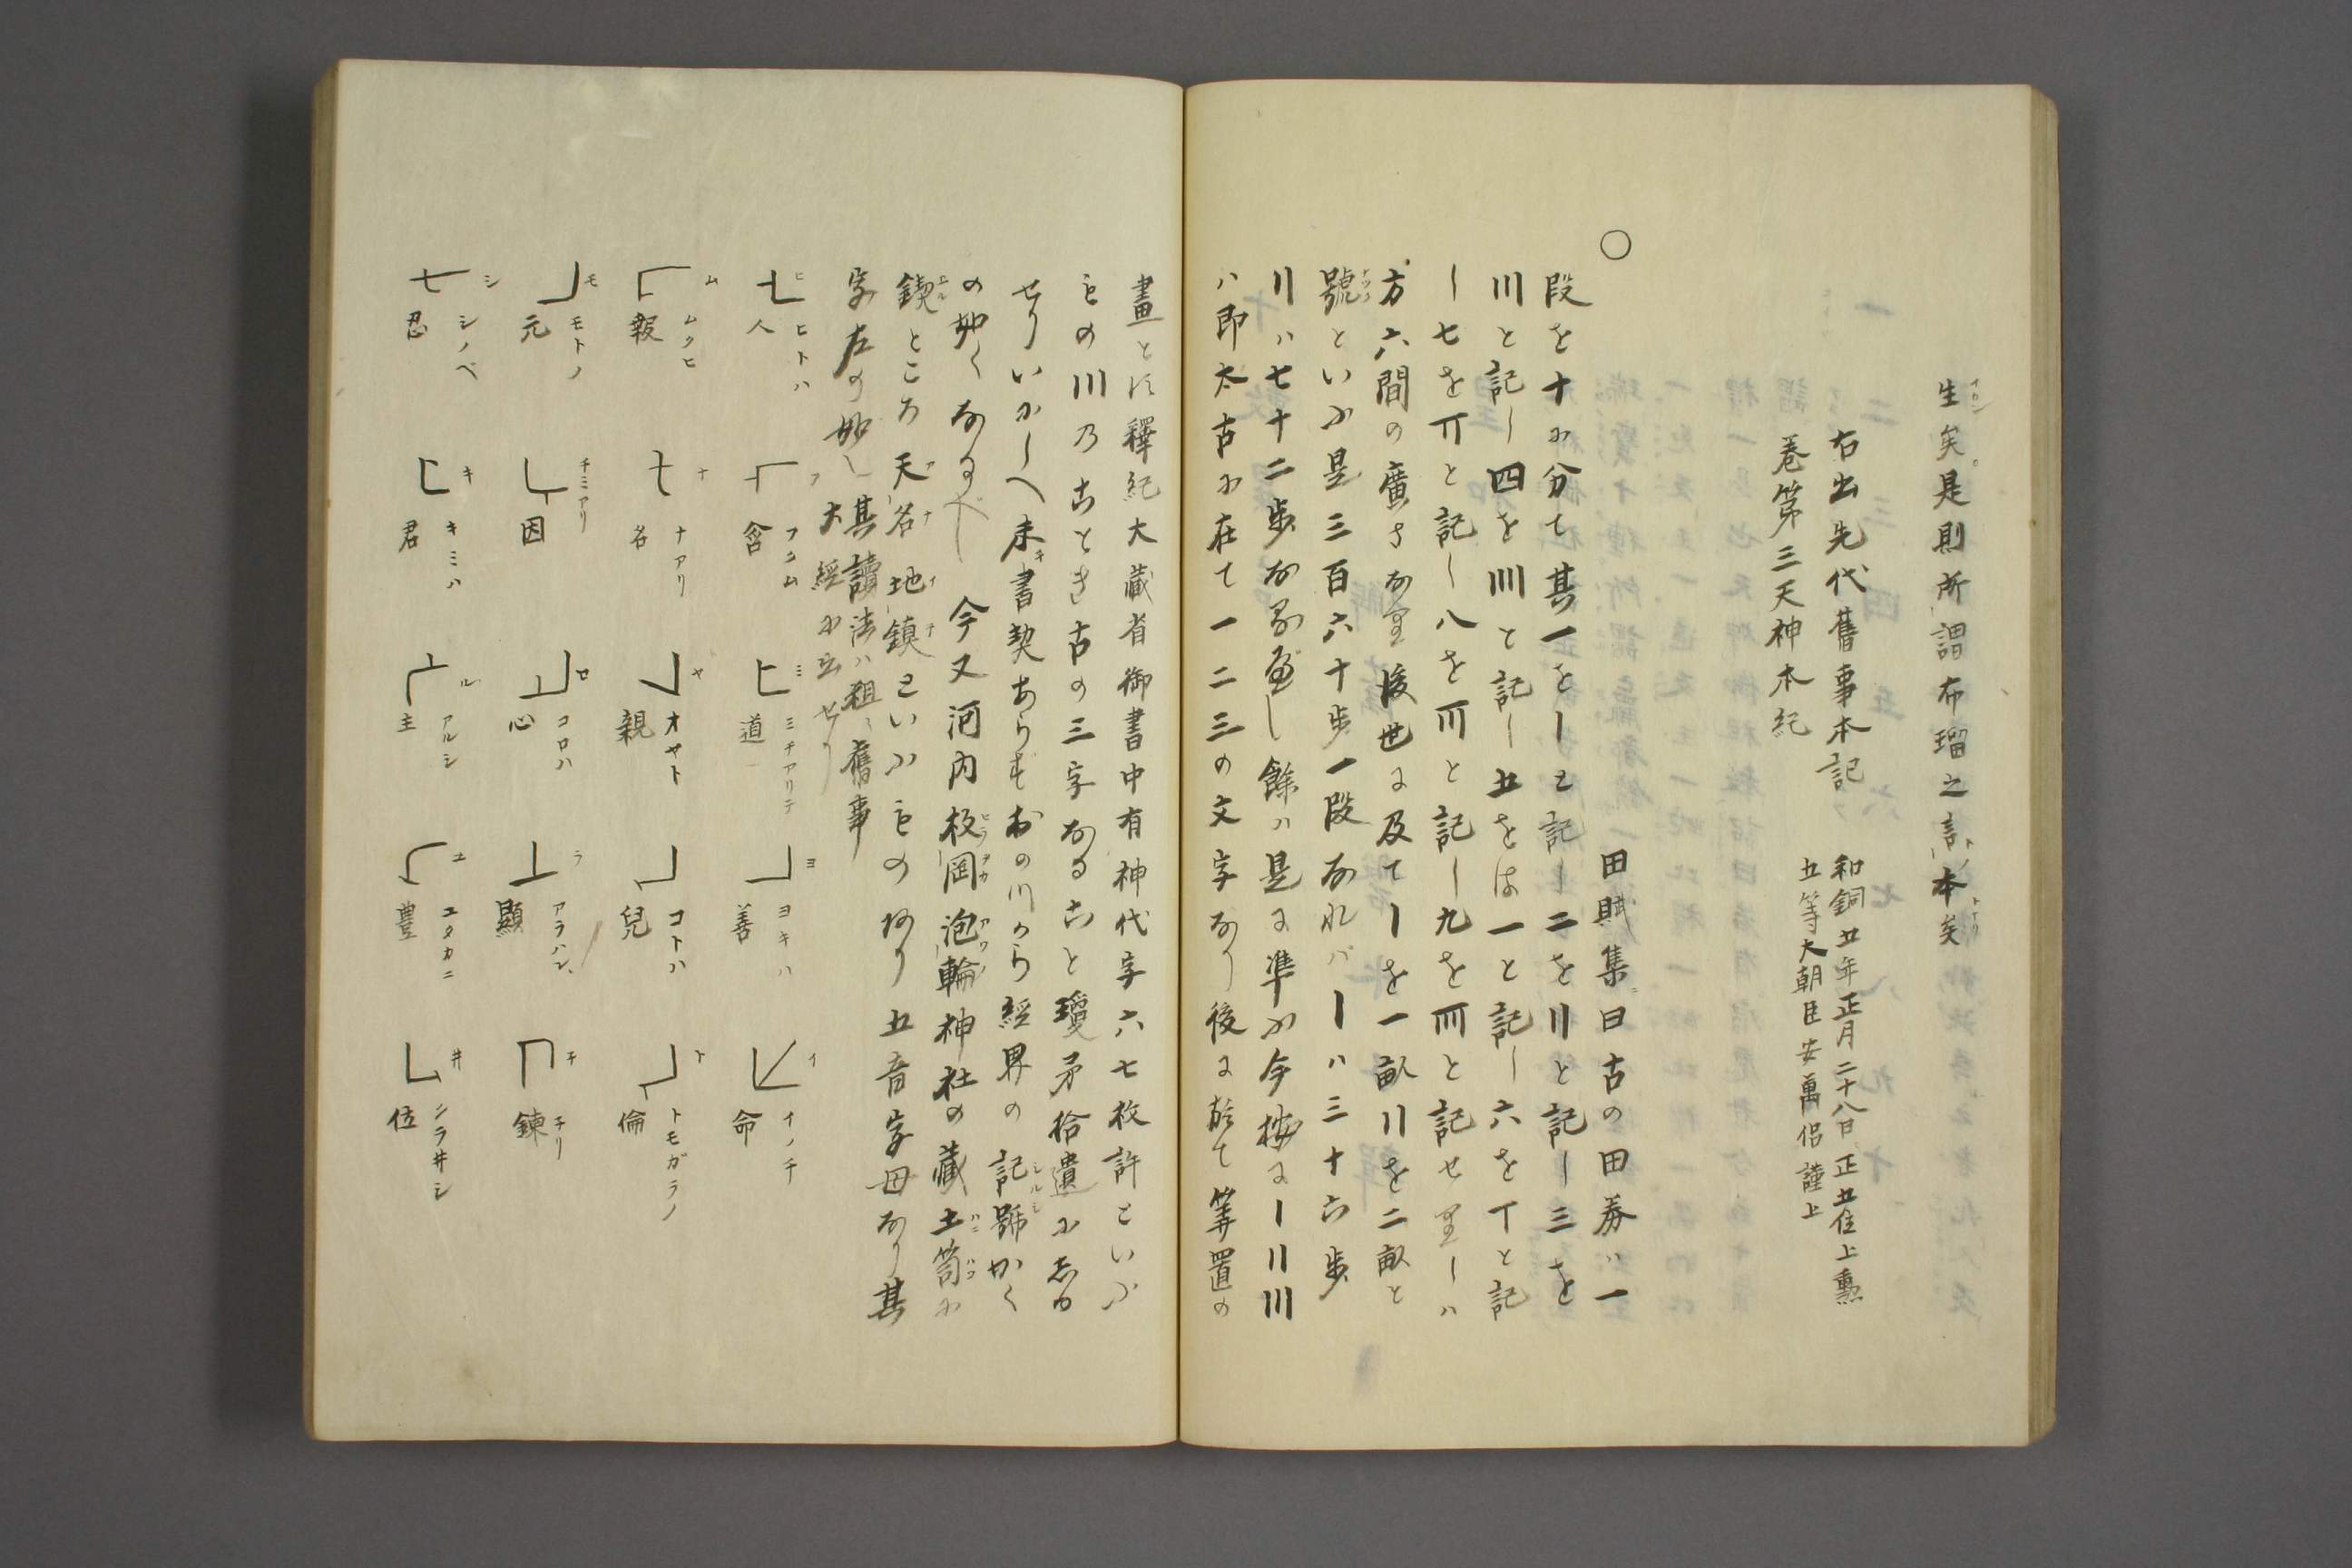 生矣是則所謂布瑠之言本矣
右出先代舊事本記
卷第三天神本紀
和銅五年正月二十八日正五位上勲
五等太朝臣安萬侶謹上
○
田賦集曰古の田券ハ一
段を十に分て其一を〡と記し二を〢と記し三を
〣と記し四を〣〡と記し五をは一と記し六を丅と記
し七を〢と記し八を〣と記し九を〣と記せりしハ
方六間の廣さなり後世に及て〡を一畝〢を二畝と
號といふ是三百六十歩一段なれバ〡ハ三十六歩
〢ハ七十二歩なる・餘ハ是に準ふ今按に〡〢〣
ハ即太古に在て一二三の文字なり後に於て筭置の
畫とす釋紀大蔵省御書中有神代字六七枚許といふ
もの〣乃ごとき古の三字なること瓊矛拾遺に志る
せりいかしへ未書契あらず・の〣から經界の記號かく
の如くなるべし 今又河内枚岡泡輪神社の蔵土笥に
鍥ところ天名地鎮といふもの阿り五音字母あり其
字左の如し其讀法ハ粗舊事
大經に出せり
ヒ ヒトハ 人
フ フクム 含
ミ ミチアリテ 道
ヨ ヨキハ 善
イ イノチ 命
ム ムクヒ 報
ナ ナアリ 名
ヤ オヤト 親
コトハ 兒
ト トモガラノ 倫
モ モトノ 元
チミアリ 因
ロ コロハ 心
ラ アラハシ 顯
ネ子リ 錬
シ シノベ 忍
キ キミハ 君
ル アルシ 主
ユ ユタカニ 豊
ヰ シラヰシ 位